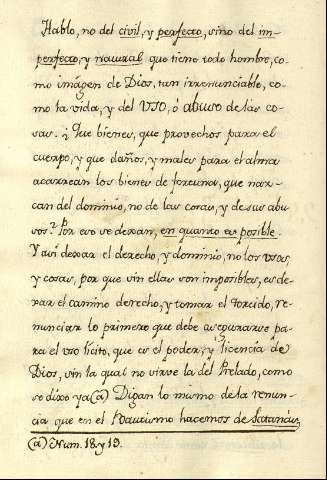 Hablo, no del civil, y perfecto, sino del im-
perfecto, y natural que tiene todo hombre, co-
mo imágen de Dios, tan irrenunciable, co-
mo la vida, y del USO, ó abuso de las co-
sas. ¿Que bienes, que provechos para el
cuerpo, y que daños, y males para el alma
acarrean los bienes de fortuna, que naz-
can del dominio, no de las cosas, y de sus abu
sos? Por eso se dexan, en quanto es posible.
Y asi dexar el derecho, y dominio, no los usos,
y cosas, por que sin ellas son imposibles, es de-
xar el camino derecho, y tomar el torcido, re-
nunciar lo primero que debe asegurarse pa-
ra el uso licito, que es el poder, y licencia de
Dios, sin la qual no sirve la del Prelado, como
se dixo ya (a) Digan lo mismo de la renun-
cia que en el Bautismo hacemos de Satanás,
(a) Num. 18 y 19.